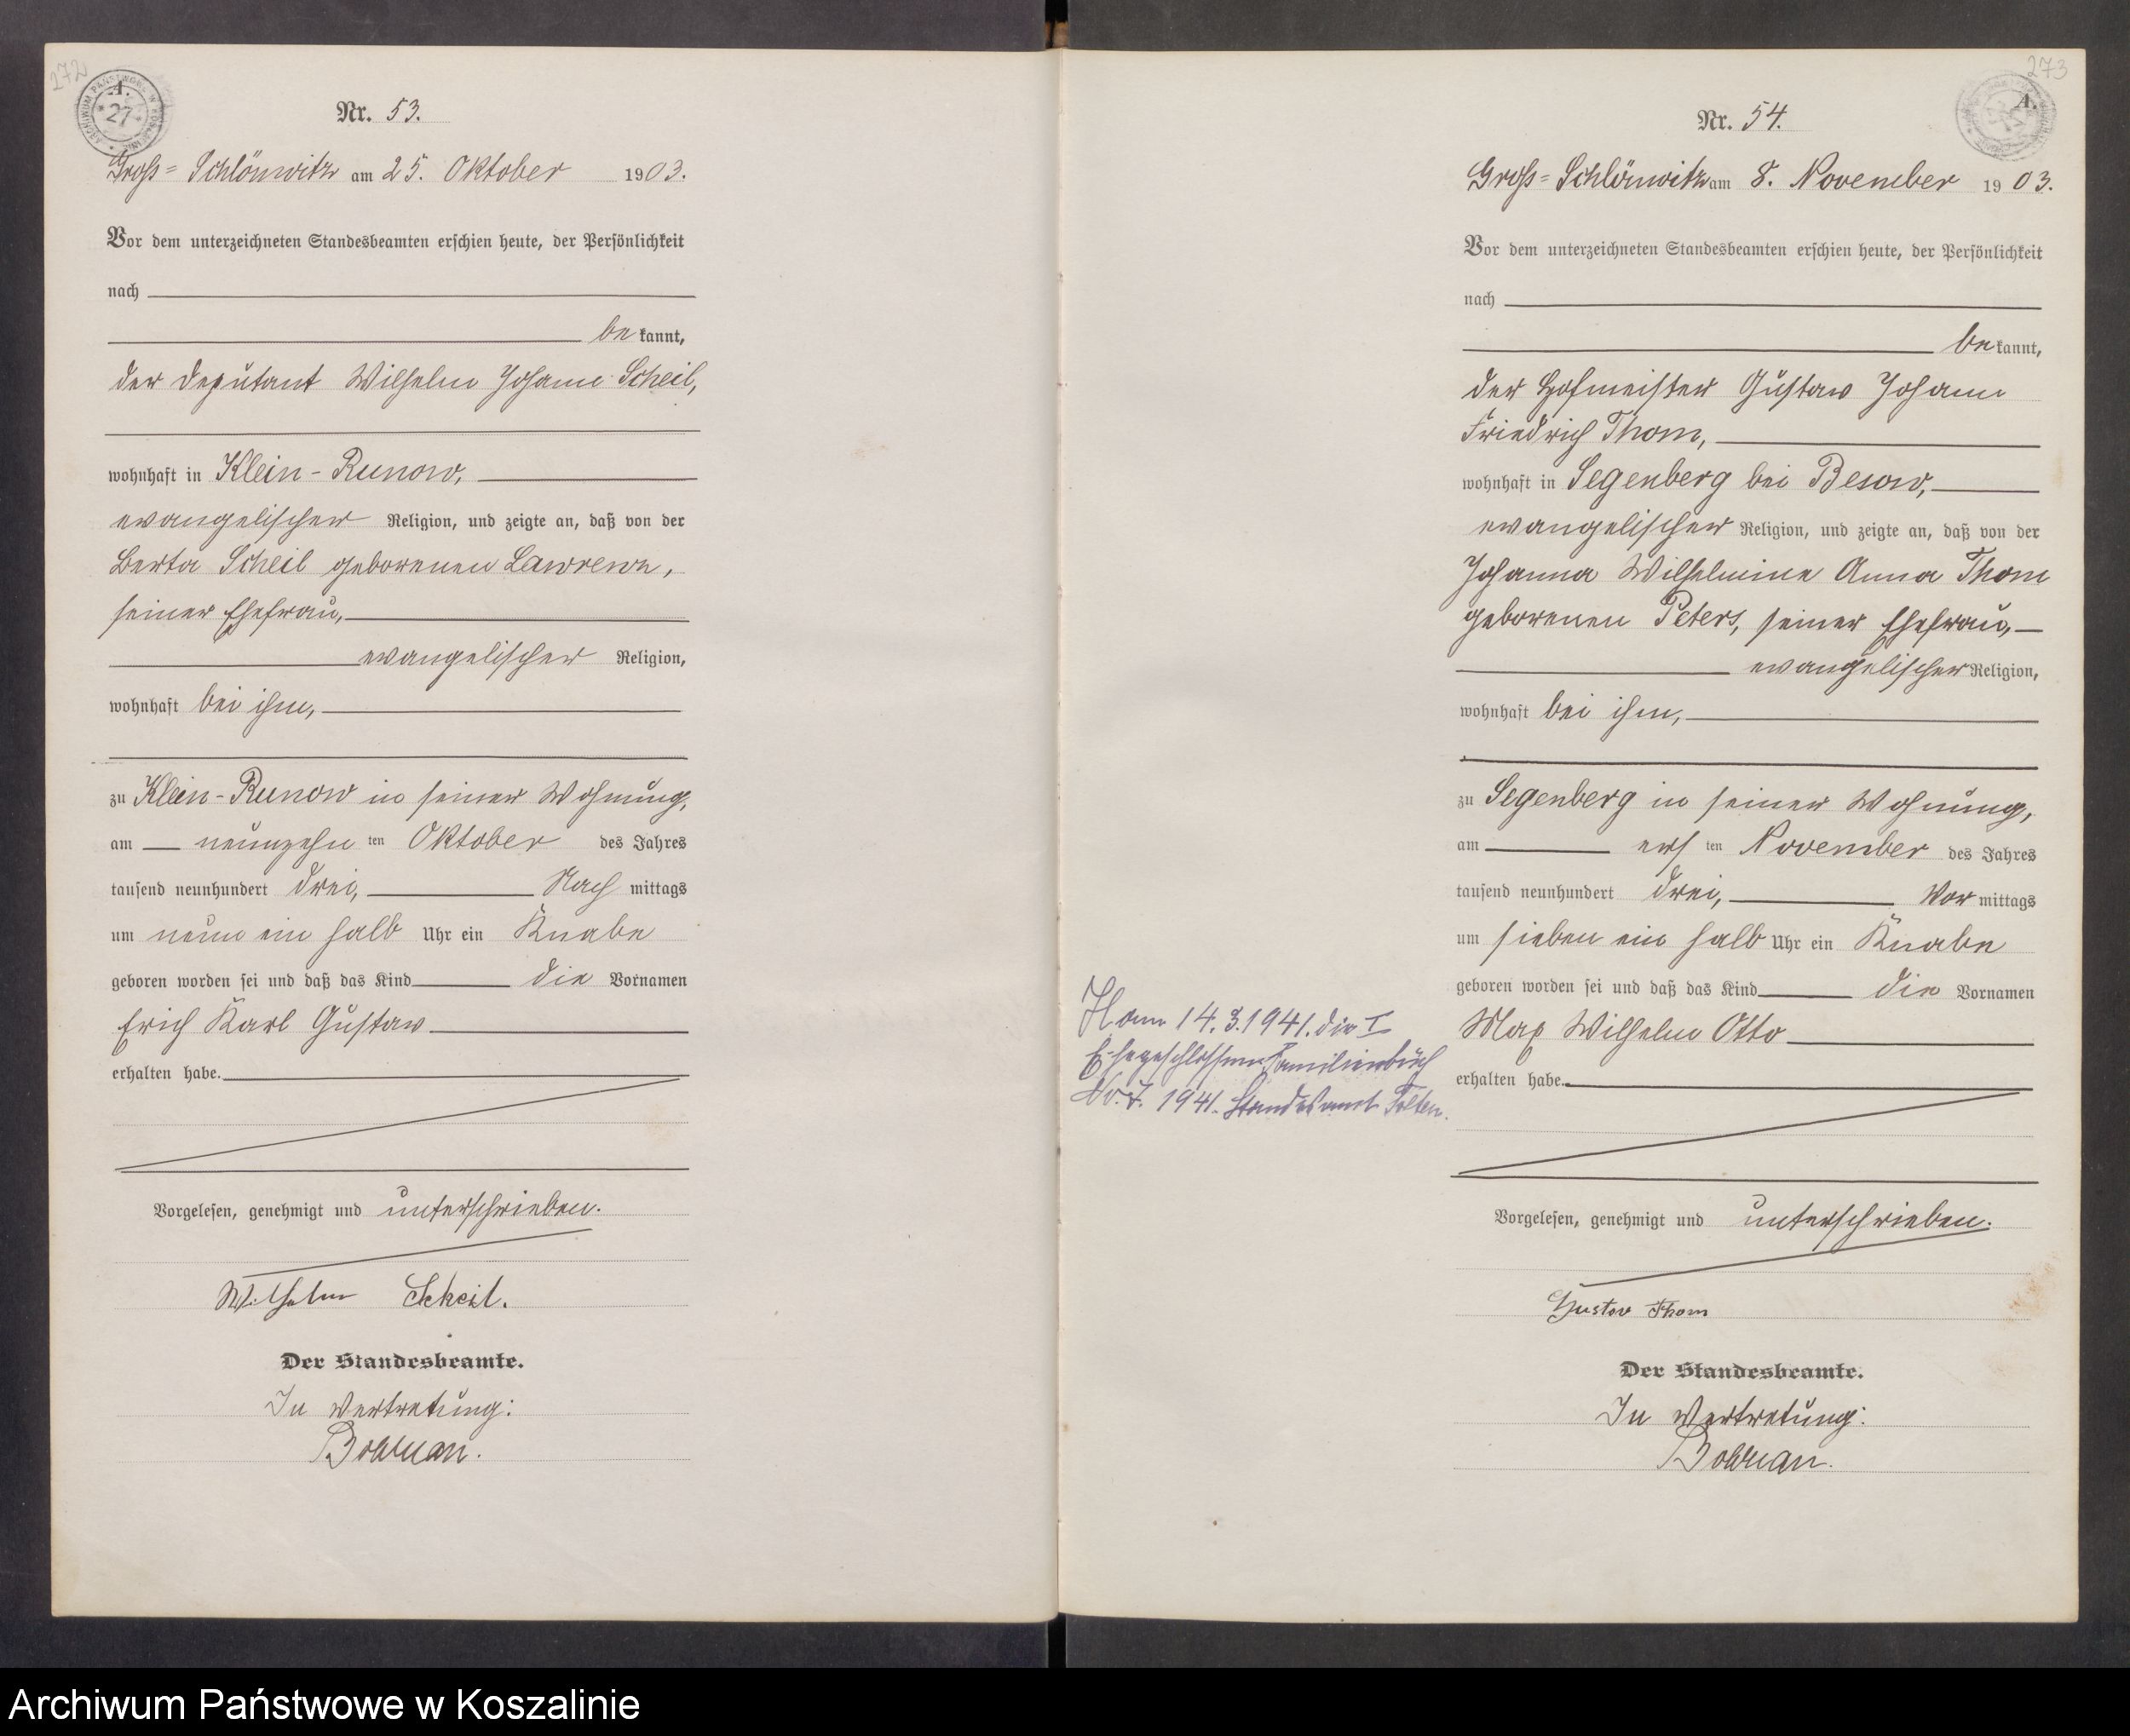 272
A.
27
Nr. 53.
Gross-Schlönwitz am 25. Oktober 1903.
Vor dem unterzeichneten Standesbeamten erschien heute, der Persönlichkeit
nach
bekannt,
der Deputant Wilhelm Johann Scheil,
wohnhaft in Klein-Runow,
evangelischer Religion, und zeigte an, daß von der
Berta Scheil geborenen Lawrenz,
seiner Ehefrau,
evangelischer Religion,
wohnhaft bei ihm,
zu Klein-Runow in seiner Wohnung,
am neunzehn ten Oktober des Jahres
tausend neunhundert drei, Nach mittags
um neun ein halb Uhr ein Knabe
geboren worden sei und daß das Kind die Vornamen
Erich Karl Gustav
erhalten habe.
Vorgelesen, genehmigt und unterschrieben.
Wilhelm Scheil.
Der Standesbeamte.
In Vertretung:
273
A.
Nr. 54.
Gross-Schlönwitz am 8. November 1903.
Vor dem unterzeichneten Standesbeamten erschien heute, der Persönlichkeit
nach
bekannt,
der Hofmeister Gustav Johann
Friedrich Thom,
wohnhaft in Segenberg bei Besow,
evangelischer Religion, und zeigte an, daß von der
Johanna Wilhelmine Anna Thom
geborenen Peters, seiner Ehefrau,
evangelischer Religion,
wohnhaft bei ihm,
zu Segenberg in seiner Wohnung,
am ersten November des Jahres
tausend neunhundert drei, Vor mittags
um sieben ein halb Uhr ein Knabe
geboren worden sei und daß das Kind die Vornamen
Max Wilhelm Otto
erhalten habe.
H am 14.3.1941. die I
Ehe geschlossen. Familienbuch
No. 7. 1941. Standesamt
Vorgelesen, genehmigt und unterschrieben.
Gustav Thom
Der Standesbeamte.
In Vertretung:
Archiwum Państwowe w Koszalinie